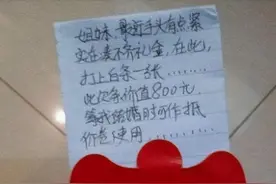 姐妹，最近手头有点紧
实在凑不齐礼金，在此，
打上白条一张........
此白条价值800元，
等我结婚时可作抵
价卷使用........